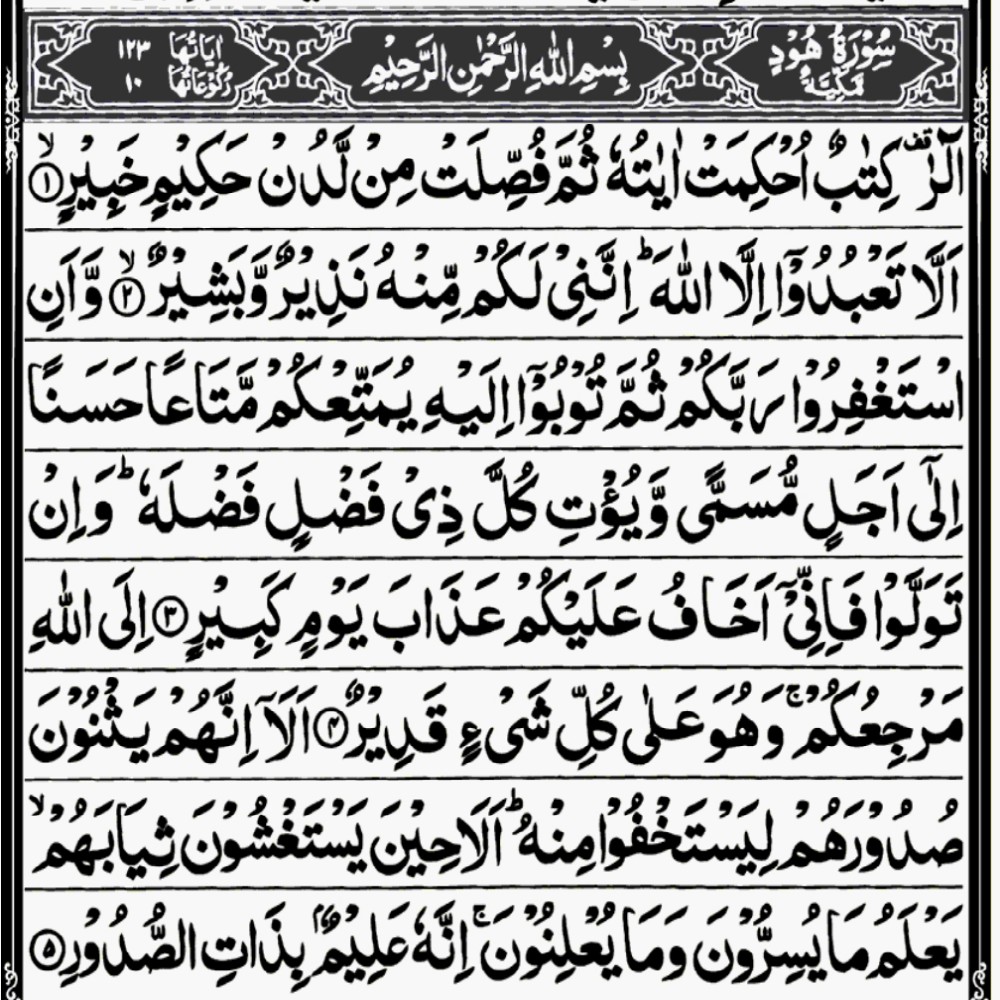 سُوْرَةُ هُوْدٍ مَكِّيَّةٌ
بِسْمِ اللّٰهِ الرَّحْمٰنِ الرَّحِيْمِ
اٰيَاتُهَا ١٢٣
رُكُوْعَاتُهَا ١٠
الٓرٰ ۫ كِتٰبٌ اُحْكِمَتْ اٰيٰتُهٗ ثُمَّ فُصِّلَتْ مِنْ لَّدُنْ حَكِيْمٍ خَبِيْرٍ ۙ ﴿١﴾
اَلَّا تَعْبُدُوْٓا اِلَّا اللّٰهَ ؕ اِنَّنِيْ لَكُمْ مِّنْهُ نَذِيْرٌ وَّبَشِيْرٌ ۙ ﴿٢﴾ وَّاَنِ
اسْتَغْفِرُوْا رَبَّكُمْ ثُمَّ تُوْبُوْٓا اِلَيْهِ يُمَتِّعْكُمْ مَّتَاعًا حَسَنًا
اِلٰٓى اَجَلٍ مُّسَمًّى وَّيُؤْتِ كُلَّ ذِيْ فَضْلٍ فَضْلَهٗ ؕ وَاِنْ
تَوَلَّوْا فَاِنِّيْٓ اَخَافُ عَلَيْكُمْ عَذَابَ يَوْمٍ كَبِيْرٍ ﴿٣﴾ اِلَى اللّٰهِ
مَرْجِعُكُمْ ۚ وَهُوَ عَلٰى كُلِّ شَيْءٍ قَدِيْرٌ ﴿٤﴾ اَلَآ اِنَّهُمْ يَثْنُوْنَ
صُدُوْرَهُمْ لِيَسْتَخْفُوْا مِنْهُ ؕ اَلَا حِيْنَ يَسْتَغْشُوْنَ ثِيَابَهُمْ ۙ
يَعْلَمُ مَا يُسِرُّوْنَ وَمَا يُعْلِنُوْنَ ۚ اِنَّهٗ عَلِيْمٌۢ بِذَاتِ الصُّدُوْرِ ﴿٥﴾